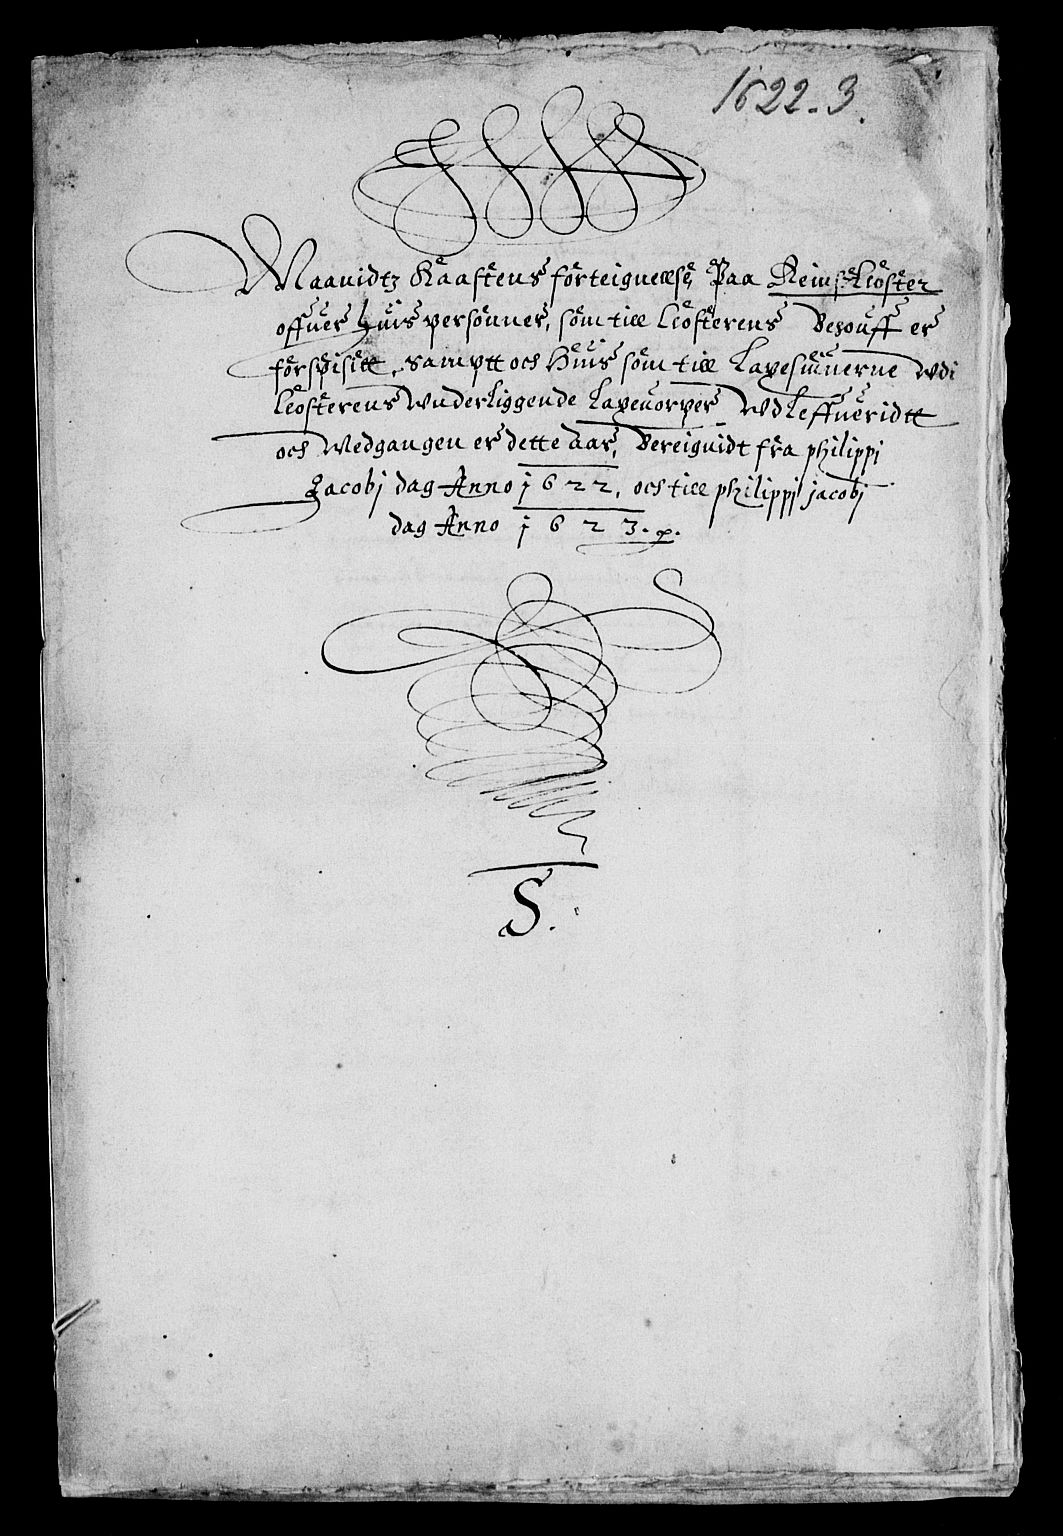 1622-3.
Maanidtz Kaastens forteignellse, Paa Reins Closter
offuer huis personner, som till Closterens Behouff er
forspisitt, sampt och Huis som till Laxesuinerne Wdi
Closterens Wnderliggende Laxeuorper Wdleffueridtt
och Medgangen er dette aar, Bereignidt fra philippi
Jacobi dag Anno 1622, och till philippi jacobi
dag Anno 1623. p.
S.